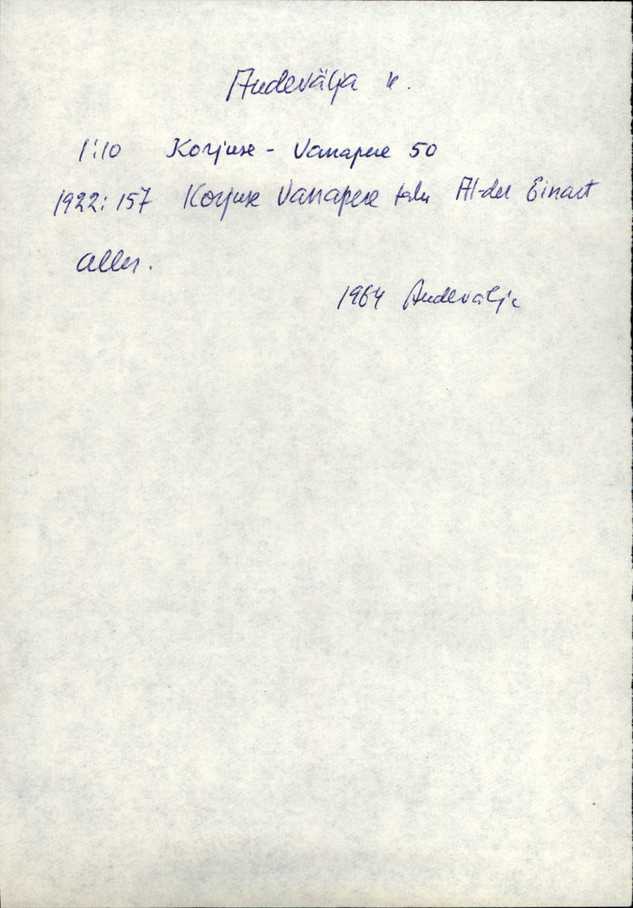 Audevälja k.
1:10 Korjuse - Vanapere 50
1922: 157 Korjuse Vanapere talu Al-der Einart
Aller.
1964 Audevälja